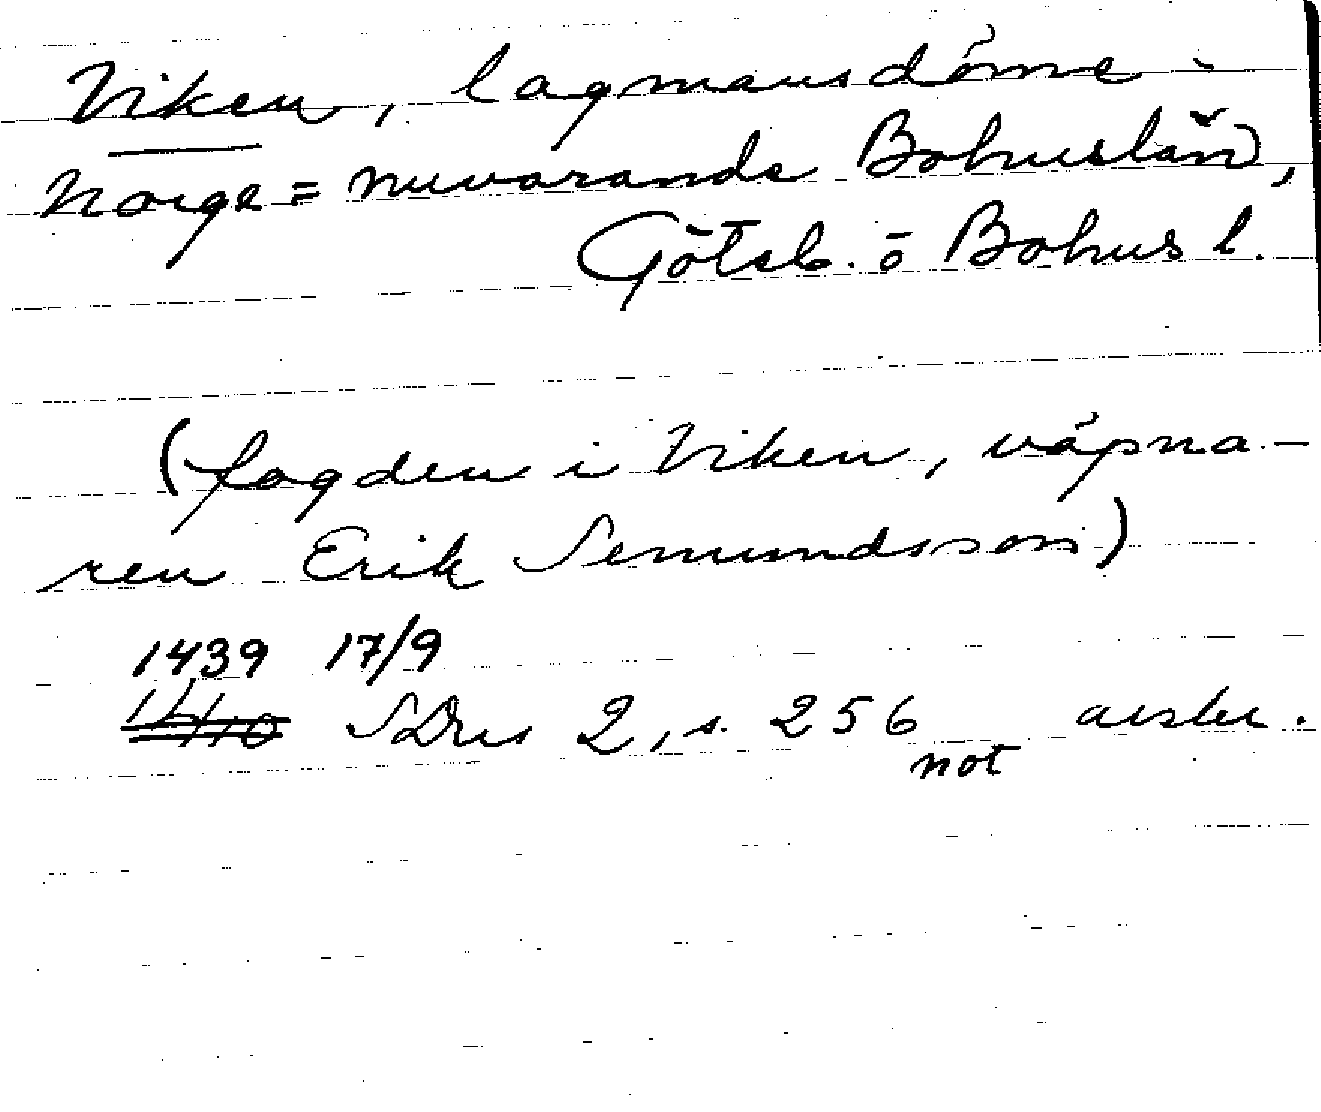 Viken, lagmansdöme -
Norge = nuvarande Bohuslän,
Göteb. o Bohus l.
(fogden i Viken, väpna-
ren Erik Semundsson)
1439 17/9
SDns 2, s. 256 avskr.
not